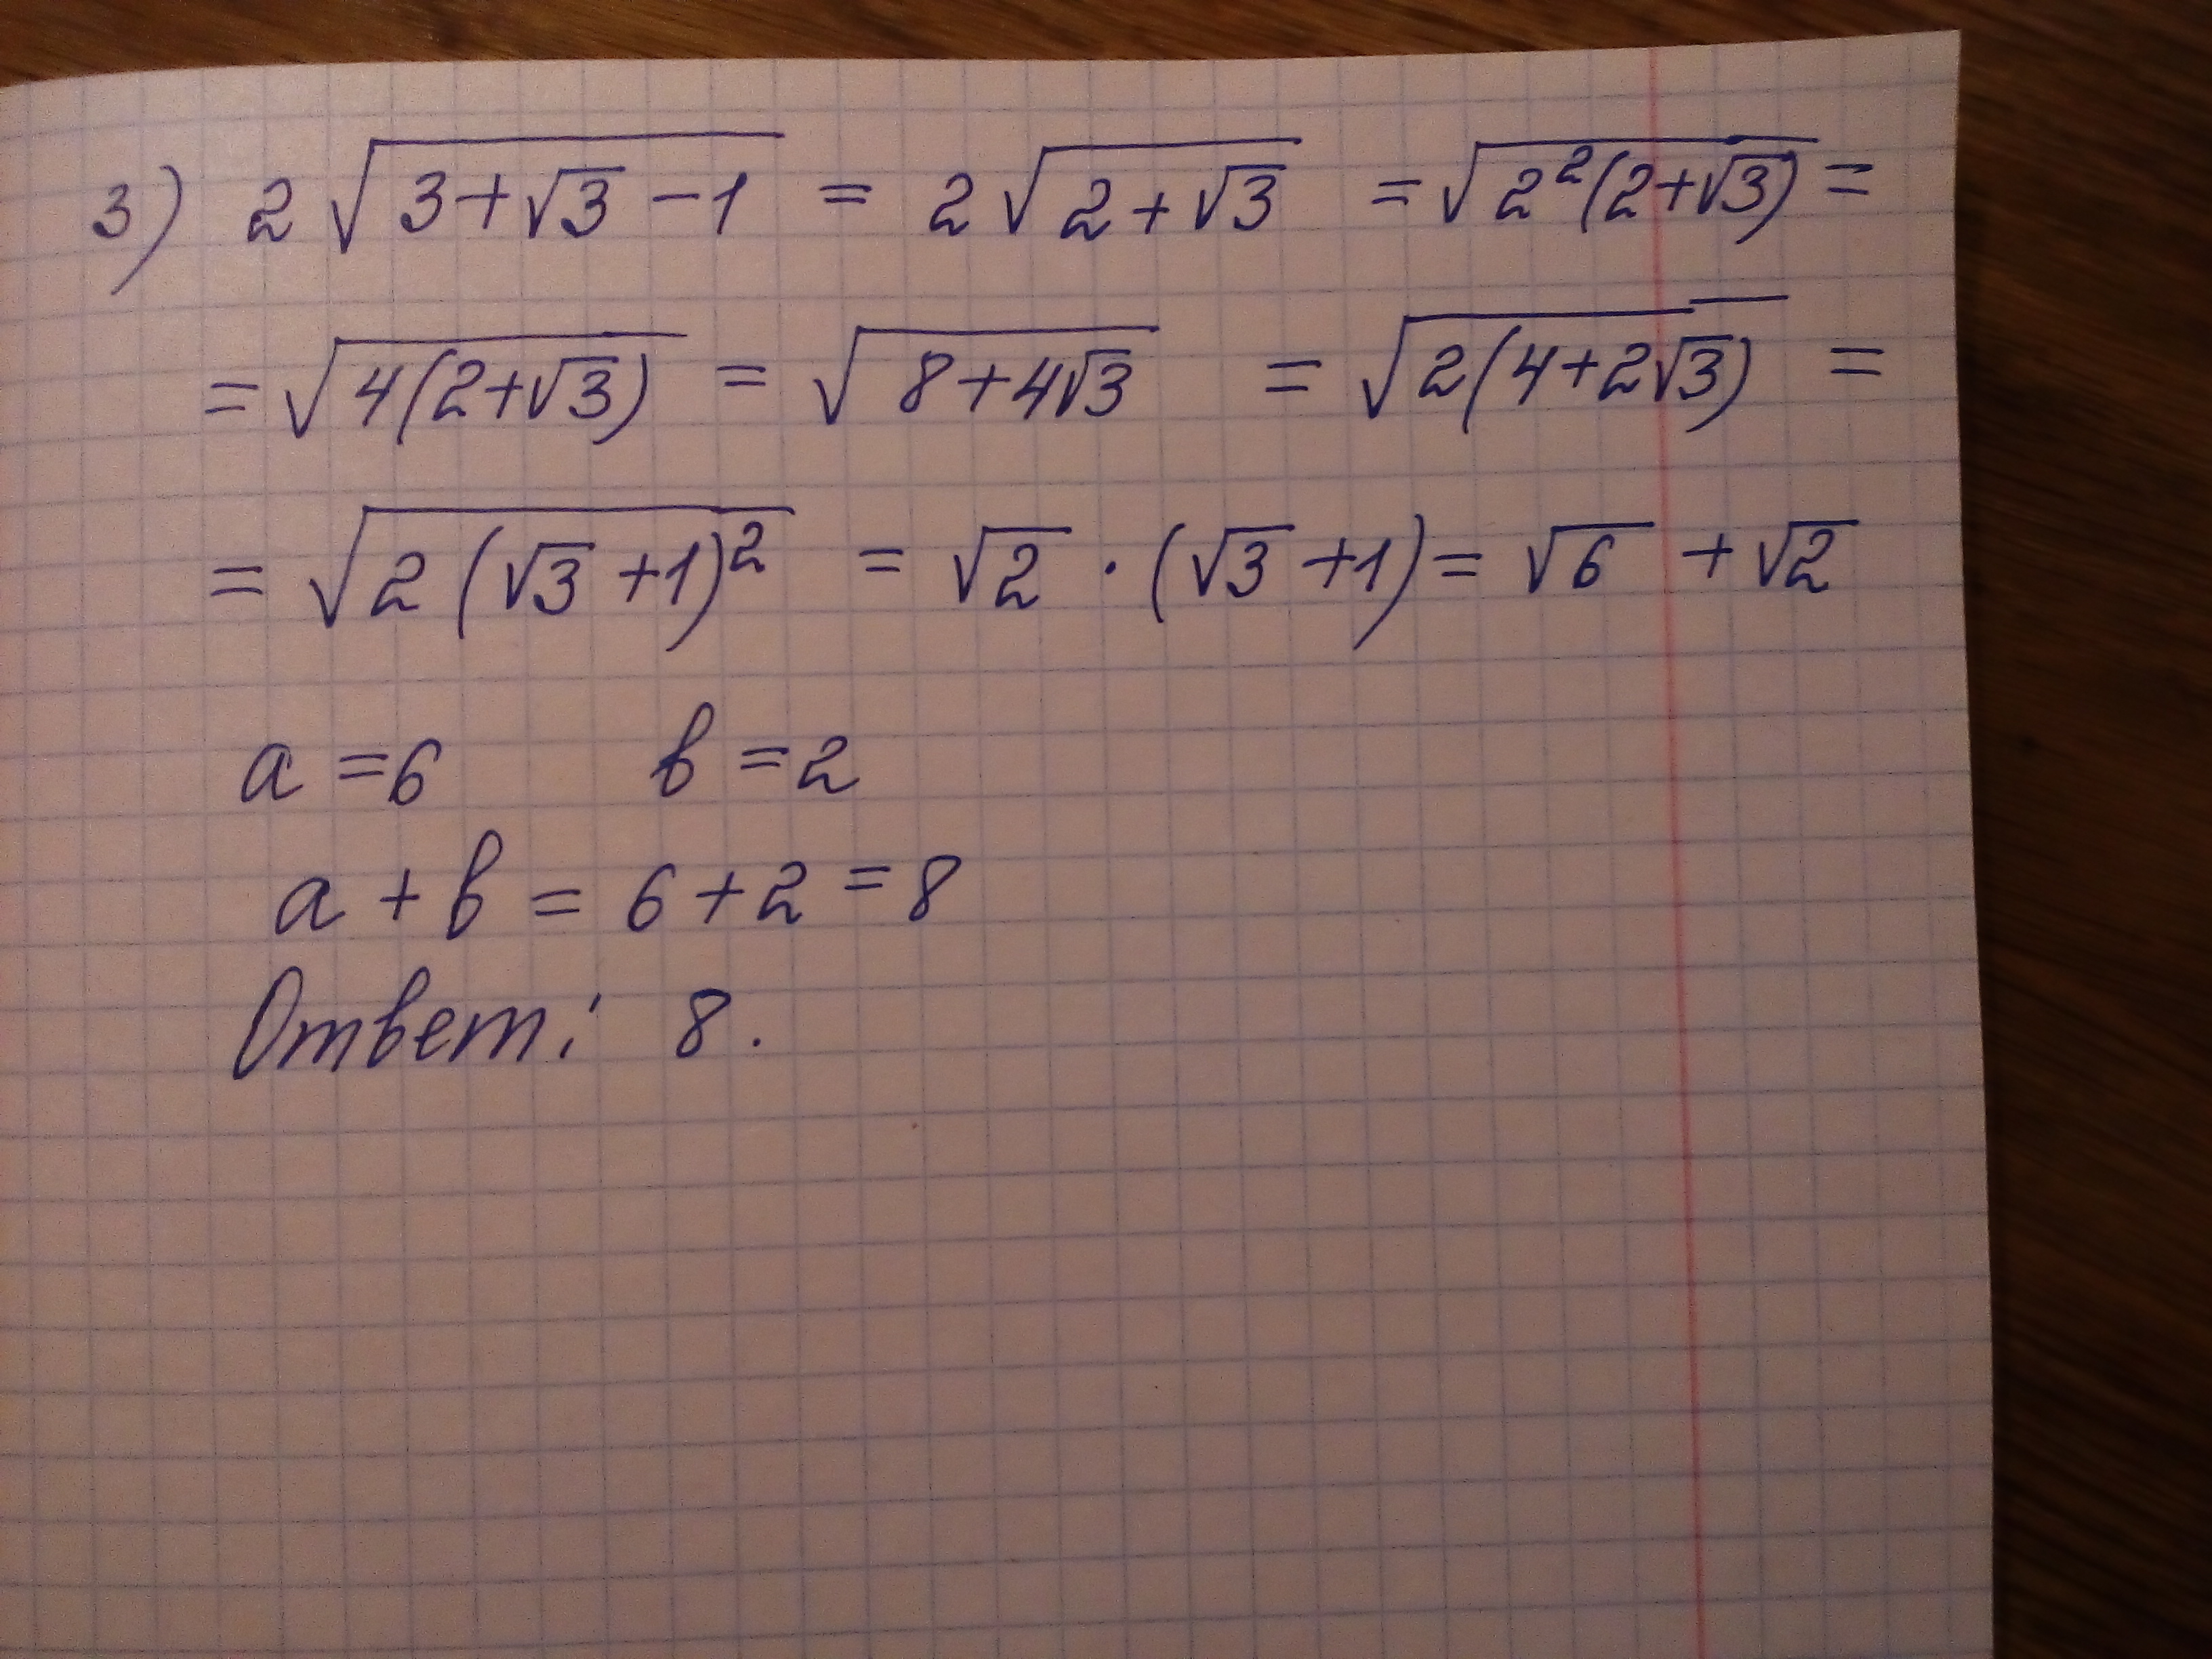 3) 2√(3+√3 −1) = 2√(2+√3) = √(2²(2+√3)) =
= √(4(2+√3)) = √(8+4√3) = √(2(4+2√3)) =
= √(2(√3+1)²) = √2 · (√3+1) = √6 + √2
a = 6 в = 2
a + в = 6 + 2 = 8
Ответ: 8.